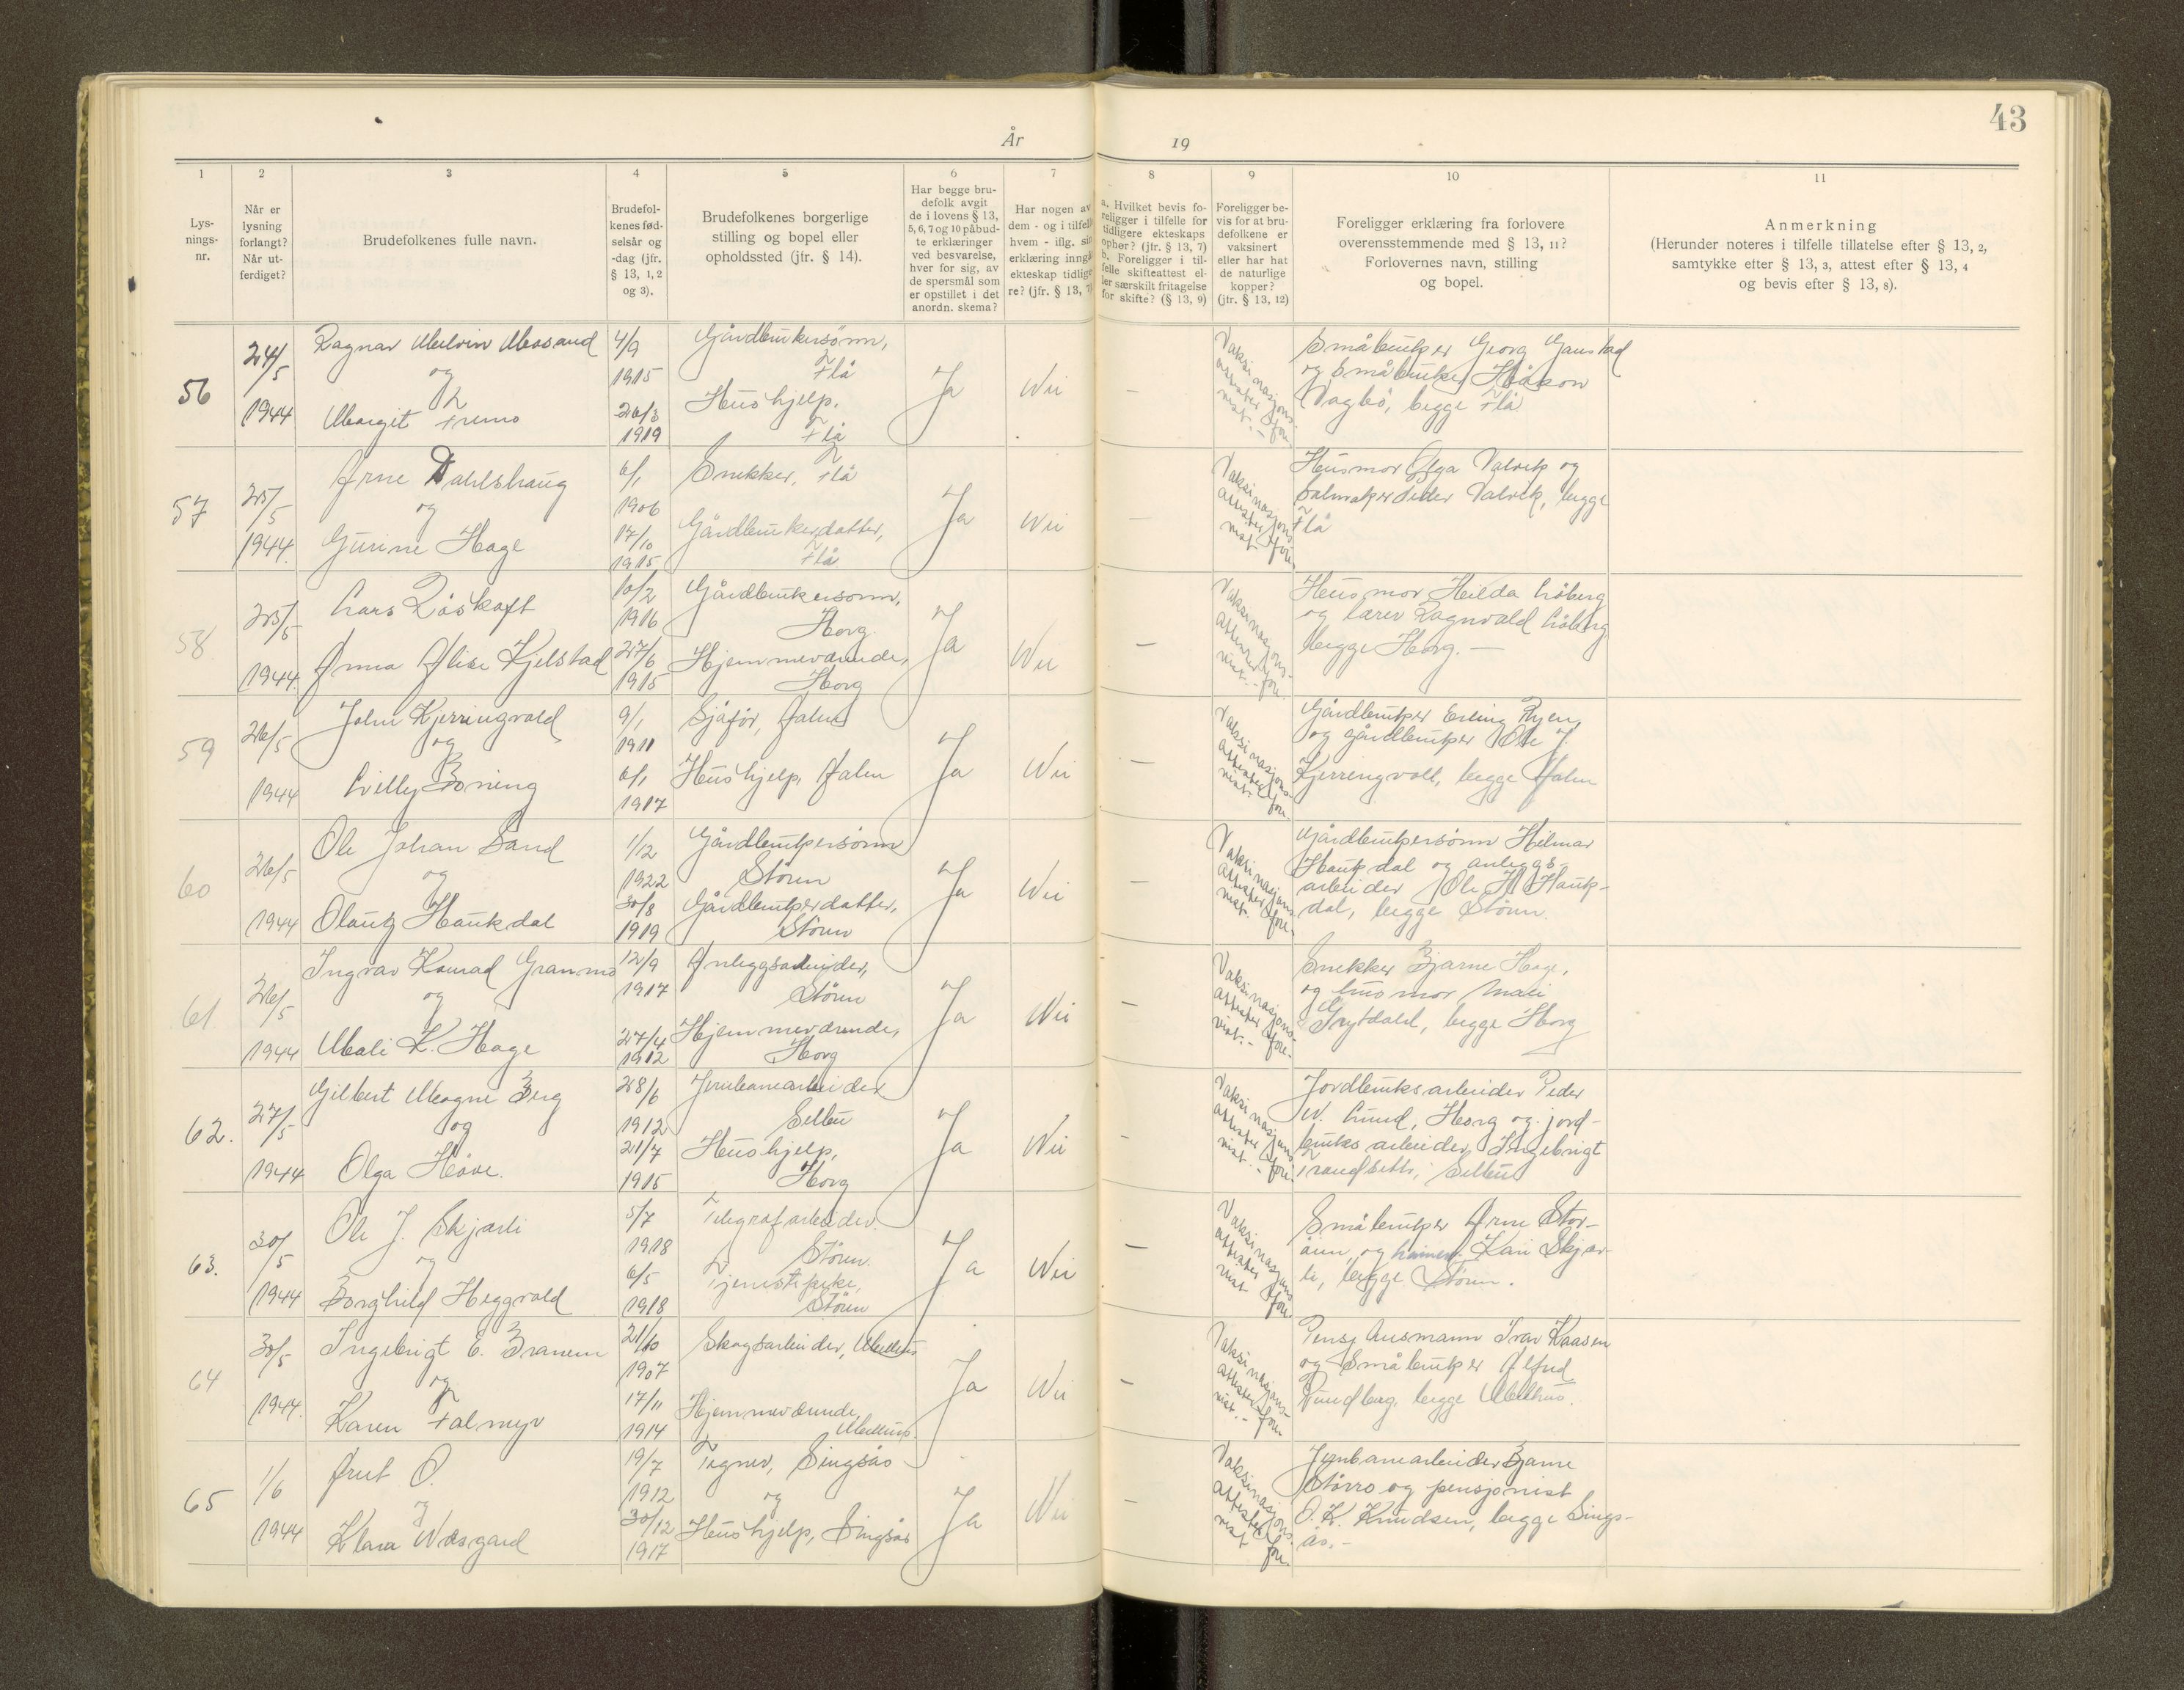 43
År 19
1 2 3 4 5 6 7 8 9 10 11
Lys-
nings-
nr.
Når er
lysning
forlangt?
Når ut-
ferdiget?
Brudefolkenes fulle navn.
Brudefol-
kenes fød-
selsår og
-dag (jfr.
§ 13, 1, 2
og 3).
Brudefolkenes borgerlige
stilling og bopel eller
opholdssted (jfr. § 14).
Har begge bru-
defolk avgit
de i lovens § 13,
5, 6, 7 og 10 påbud-
te erklæringer
ved besvarelse,
hver for sig, av
de spørsmål som
er opstillet i det
anordn. skema?
Har nogen av
dem - og i tilfelle
hvem - iflg. sin
erklæring inngå
ekteskap tidlige-
re? (jfr. § 13, 7)
a. Hvilket bevis fo-
religger i tilfelle for
tidligere ekteskaps
ophør? (jfr. § 13, 7)
b. Foreligger i til-
felle skifteattest el-
ler særskilt fritagelse
for skifte? (§ 13, 9)
Foreligger be-
vis for at bru-
defolkene er
vaksinert
eller har hat
de naturlige
kopper?
(jfr. § 13, 12)
Foreligger erklæring fra forlovere
overensstemmende med § 13, 11?
Forlovernes navn, stilling
og bopel.
Anmerkning
(Herunder noteres i tilfelle tillatelse efter § 13, 2,
samtykke efter § 13, 3, attest efter § 13, 4
og bevis efter § 13, 8).
56
24/5
1944
Ragnar Melvin Mosand
og
Margit Fremo
4/9
1915
26/3
1919
Gårdbrukersønn,
Flå
Hushjelp,
Flå
Ja
Nei
—
Vaksinasjons-
attester fore-
vist.-
Småbruker Georg Ganstad
og småbruker Håkon
Vagbø, begge Flå
57
25/5
1944
Arne Dahlshaug
og
Gurine Hage
6/1
1906
17/10
1915
Snekker, Flå
Gårdbrukerdatter,
Flå
Ja
Nei
—
Vaksinasjons
attester fore
vist
Husmor Olga Valvik og
salmaker Peder Valvik, begge
Flå
58
25/5
1944
Lars Råskaft
Anna Alise Kjelstad
10/2
1916
27/6
1915
Gårdbrukersønn,
Horg.
Hjemmeværende,
Horg
Ja
Nei
—
Vaksinasjons-
attester fore-
vist.-
Husmor Hilda Løberg
og lærer Ragnvald Løberg
begge Horg. —
59
26/5
1944
John Kjerringvold
og
Lilly Boning
9/1
1911
6/1
1917
Sjåfør, Hølen
Hushjelp, Hølen
Ja
Nei
—
Vaksinasjons-
attester fore-
vist.
Gårdbruker Erling Ryen,
og gårdbruker Ole J.
Kjerringvoll, begge Hølen
60
26/5
1944
Ole Johan Sand
og
Olaug Haukdal
1/2
1922
30/8
1919
Gårdbrukersønn
Støren
Gårdbrukerdatter,
Støren
Ja
Nei
—
Vaksinasjons-
attester fore-
vist.
Gårdbrukersønn Hilmar
Haukdal og anleggs-
arbeider Ole H. Hauk-
dal, begge Støren.
61
26/5
1944
Ingvar Konrad Granmo
og
Mali K. Hage
12/9
1917
27/4
1912
Anleggsarbeider,
Støren
Hjemmeværende,
Horg
Ja
Nei
—
Vaksinasjons-
attester fore-
vist.-
Snekker Bjarne Hage,
og husmor Mali
Grytdahl, begge Horg
62.
27/5
1944
Gilbert Magne Berg
og
Olga Høve.
28/6
1912
21/7
1915
Jernbanearbeider
Selbu
Hushjelp,
Horg
Ja
Nei
-
Vaksinasjons
attester fore
vist.-
Jordbruksarbeider Peder
N. Lund, Horg og jord-
bruksarbeider Ingebrigt
Trandsetli, Selbu
63.
30/5
1944
Ole J. Skjærli
og
Borghild Heggvold
5/7
1918
6/5
1918
Telegrafarbeider.
Støren.
Tjenestepike,
Støren
Ja
Nei
—
Vaksinasjons
attester fore.
vist
Småbruker Arne Stor-
øien, og Kari Skjær-
li, begge Støren.
64
30/5
1944.
Ingebrigt E. Branem
og
Karen Folmyr
21/10
1907
17/11
1914
Skogsarbeider, Melhus
Hjemmeværende,
Melhus
Ja
Nei
—
Vaksinasjons-
attester fore-
vist.-
Pensj. Ivar Kaasen
og småbruker Alfred
Rundberg, begge Melhus.
65
1/6
1944
Arnt O.
og
Klara Næsgard
19/7
1912
30/12
1917
Tegner, Singsås
og
Hushjelp, Singsås
Ja
Nei
—
Vaksinasjons
attester fore-
vist
Jernbanearbeider Bjarne
Størro og pensjonist
O. K. Knudsen, begge Sings-
ås.-